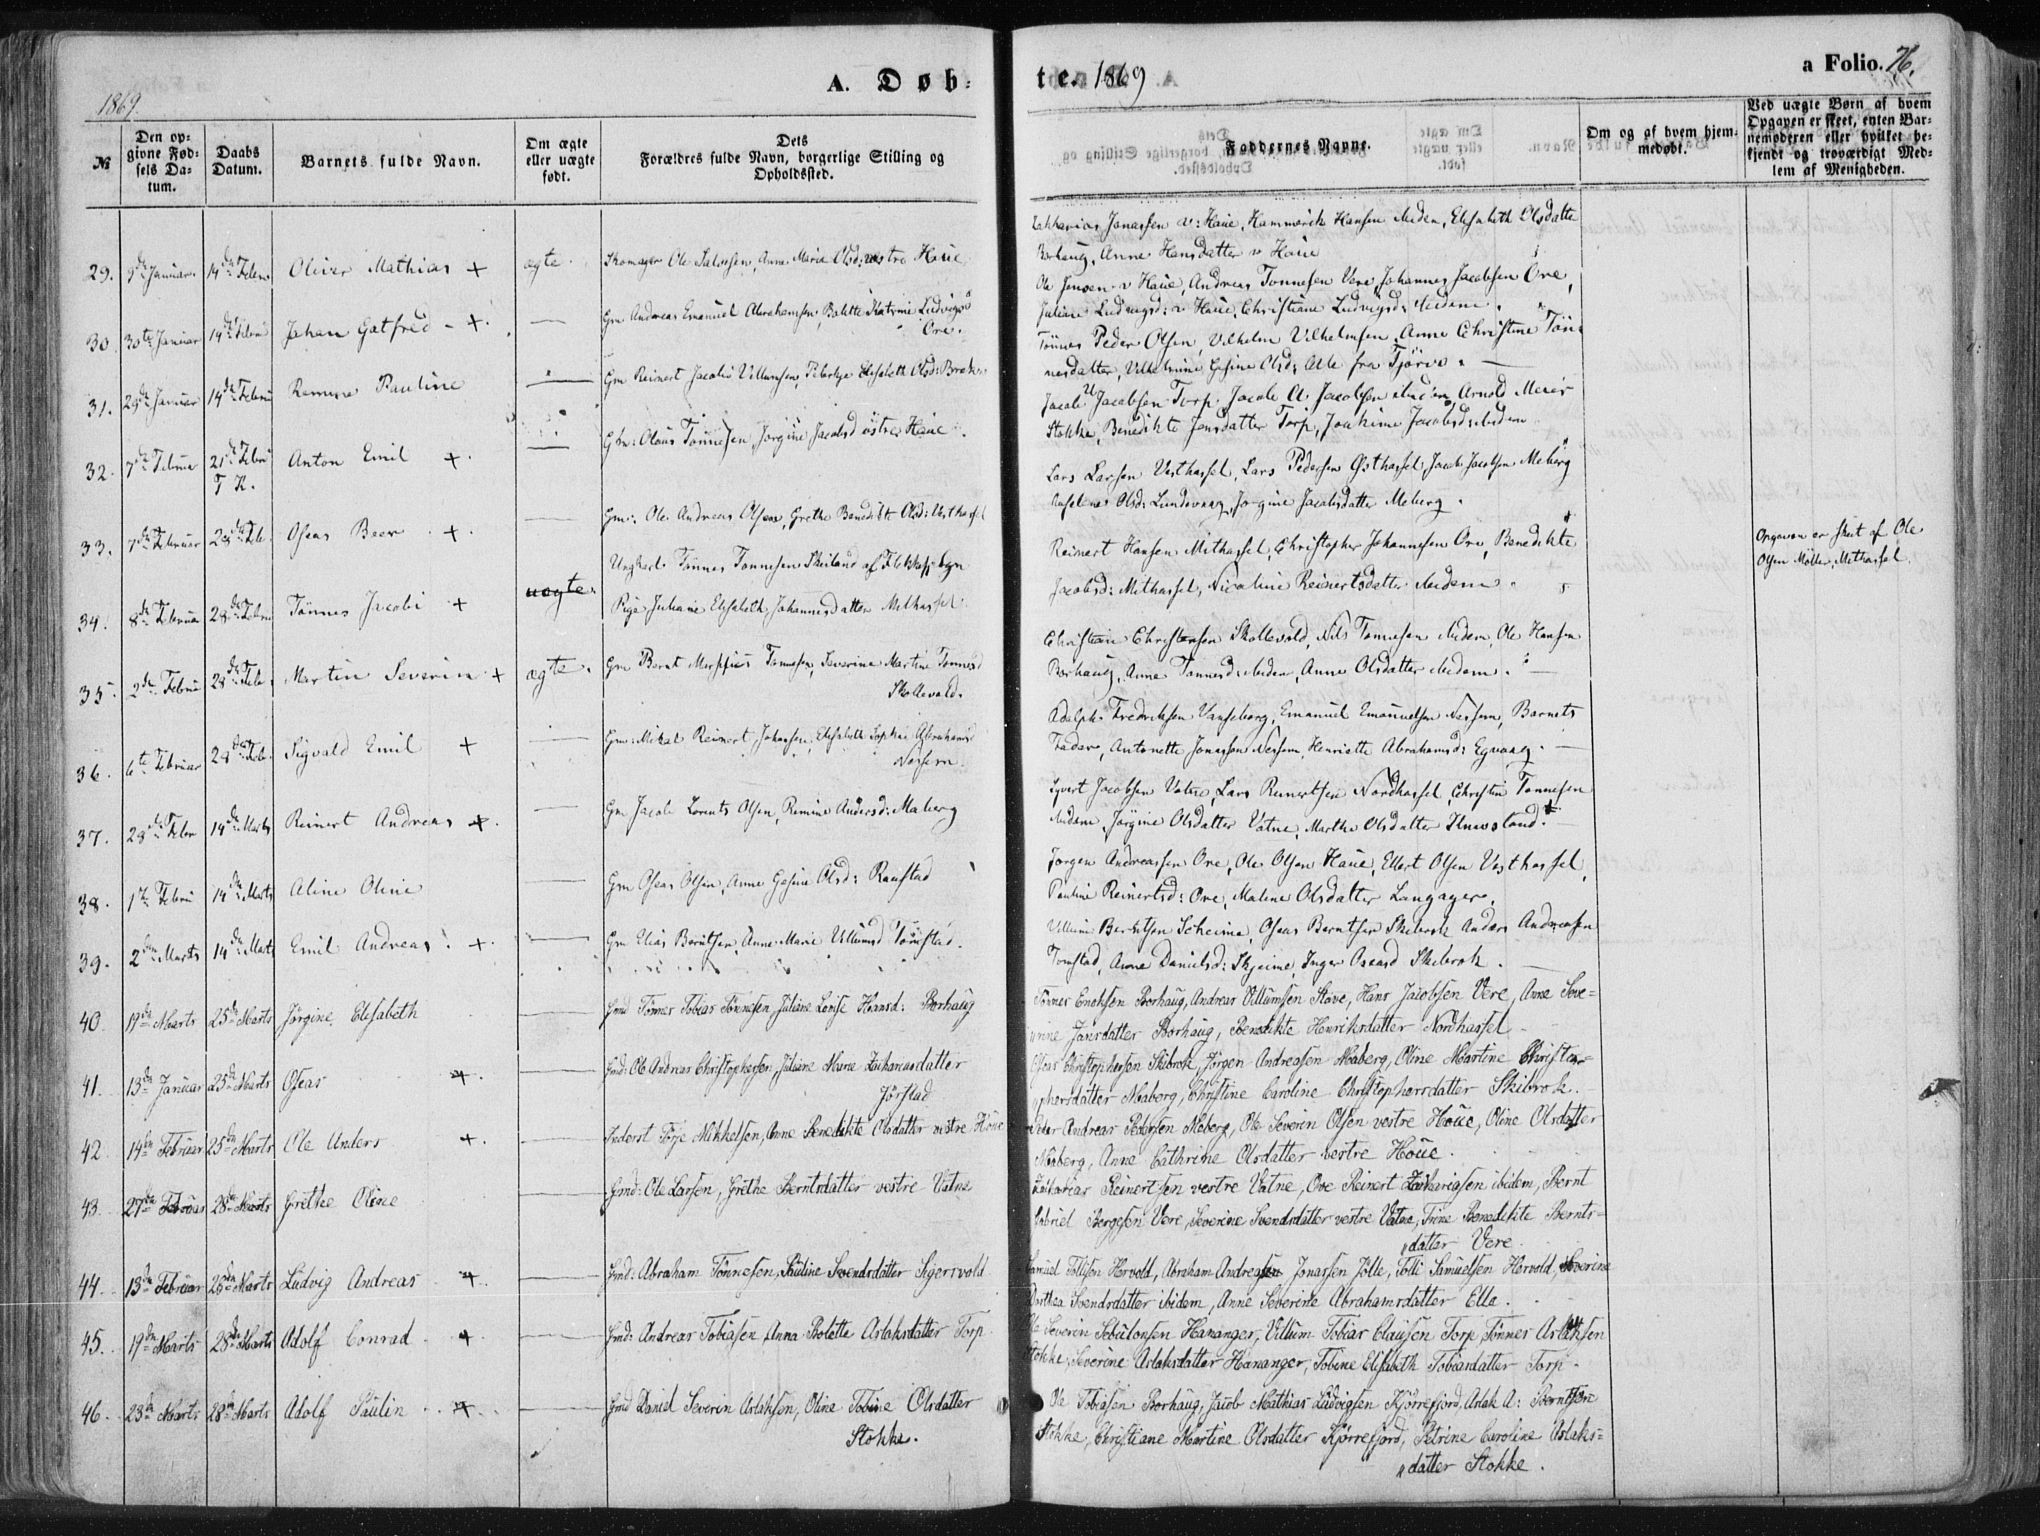 1869.
A. Døb=
№
Den op=
givne Fød=
sels Da=
tum.
Daabs
Datum.
Barnets fulde Navn.
Om ægte
eller uægte
født.
Dets
Forældres fulde Navn, borgerlige Stilling og
Opholdssted.
29. 9de Januar 14de Febru Oliver Mathias + ægte. Skomager Ole Salvesen, Anne Marie Olsd: vestre Haue
30. 30te Januar 14de Febru Johan Gotfred - +. — Gm Andreas Emanuel Abrahamsen, Bolette Katrine Ludvigsd
Ore.
31. 29de Januar 14de Febru Pauline — Gm Reinert Jacob Villumsen, Elisabeth Olsd: Brek
32. 7de Februar 21de Febru Anton Emil +. — Gbr: Olaus Tønnesen, Jørgine Jacobsd østre Haue.
T K.
33. 7de Februar 28de Feb. Oseas Beer +. — Gm: Ole Andreas Olsen, Grethe Benedikte Olsd: Vesthassel
34. 8de Februar 28de Febru Tønnes Jacob +. uægte. Ungkarl Tønnes Tønnesen Skeiland af
Pige Juliane Elisabeth Johannesdatter Mithassel
35. 2de Febru 28de Feb. Martin Severin + ægte. Gm Bernt Tønnesen, Severine Martine Tønnesd
Skollevold.
36. 6te Februar 28de Feb. Sigvald Emil + — Gm: Mikal Reinert Johnsen, Elisabeth Sophie Abrahamsd
Nesheim.
37. 28de Febr 14de Marts Reinert Andreas +. — Gm Jacob Lorents Olsen, Remine Andersd: Maberg
38. 1te Febru 14de Marts Aline Oline — Gm Oseas Olsen, Anne Gesine Olsd: Raustad
39. 2den Marts 14de Marts Emil Andreas. +. — Gm Elias Berntsen, Anne Marie Villumsd Tomstad.
40. 19de Marts 25de Marts Jørgine Elisabeth — Gmd Tønnes Tobias Tønnesen, Juliane Lovise Hansd: Borhaug
41. 13de Januar 25de Marts Oseas +. — Gmd: Ole Andreas Christophersen, Juliane Marie Zachariasdatter
Jørstad
42. 14de Februar 25de Marts Ole Anders +. — Inderst Terje Mikkelsen, Anne Benedikte Olsdatter vestre Houe
43. 27de Februar 28de Marts Grethe Oline — Gmd: Ole Larsen, Grethe Berntsdatter vestre Vatne
44. 13de Februar 28de Marts Ludvig Andreas +. — Gmd: Abraham Tønnesen, Pauline Svendsdatter Sigersvold
45. 19de Marts 28de Marts Adolf Conrad + — Gmd: Andreas Tobiasen, Anna Bolette Aslaksdatter Torp
46. 23de Marts 28de Marts Adolf Paulin +. — Gmd Daniel Severin Aslaksen, Oline Tobine Olsdatter
Stokke.
te. 1869
a Folio. 76.
Faddernes Navne.
Om og af hvem hjem=
medøbt.
Ved uægte Børn af hvem
Opgaven er skeet, enten Bar=
nemoderen eller hvilket be=
kjendt og troværdigt Med=
lem af Menigheden.
Zakharias Jonassen v: Haue, Hammerich Hansen ibidem, Elisabeth Olsdatter
Borhaug, Anne Hansdatter v Haue
Ole Jensen v Haue, Andreas Tønnesen Vere, Johannes Jacobsen Ore,
Juliane Ludvigsd: v Haue, Christiane Ludvigsd: ibidem.
Tønnes Peder Olsen, Vilhelm Vilhelmsen, Anne Christine Tøn=
nesdatter, Vilhelmine Gesine Olsd: Alle fra Tjørve. —
Jacob Jacobsen Torp, Jacob A. Jacobsen ibidem, Arnold Meier
Stokke, Benedikte Jensdatter Torp, Joakime Jacobsd: ibidem
Lars Larsen Vesthassel, Lars Pedersen Østhassel, Jacob Jacobsen Meberg
Olsd: Lundevaag, Jørgine Jacobsdatter Meberg.
Reinert Hansen Mithassel, Christopher Johannesen Ore, Benedikte
Jacobsd: Mithassel, Nicoline Reinertsdatter ibidem
Opgaven er skeet af Ole
Olsen Møller, Mithassel.
Christian Christensen Skollevold, Nils Tønnesen ibidem, Ole Hansen
Borhaug, Anne Tønnesd: ibidem, Anne Olsdatter ibidem. —
Adolph Fredriksen Vanseborg, Emanuel Emanuelsen Nesheim, Barnets
Fader, Antonette Jonassen Nesheim, Henriette Abrahamsd: Egvaag. —
Syvert Jacobsen Vatne, Lars Reinertsen Nordhassel, Christen Tønnesen
ibidem, Jørgine Olsdatter Vatne, Marthe Olsdatter
Jørgen Andreassen Ore, Ole Olsen Haue, Ellert Olsen Vesthassel,
Pauline Reinertsd: Ore, Malene Olsdatter Langager.
Villum Berntsen Scheime, Oseas Berntsen Skibrok Anders Andreasen
Tomstad, Anne Danielsd: Skjeime, Inger Oseasd Skibrok. —
Tønnes Enoksen Borhaug, Andreas Villumsen Stave, Hans Jacobsen Vere, Anne Seve=
rine Jansdatter Borhaug, Benedikte Henriksdatter Nordhassel
Oseas Christophersen Skibrok, Jørgen Andreasen Maberg, Oline Martine Christo=
phersdatter Maberg, Christine Caroline Christophersdatter Skibrok.
Peder Andreas Pedersen Meberg, Ole Severin Olsen vestre Houe, Oline Olsdatter
Meberg, Anne Cathrine Olsdatter vestre Houe.
Zacharias Reinertsen vestre Vatne, Ove Reinert Zachariasen ibidem, Bernt
Gabriel Bergesen Vere, Severine Svendsdatter vestre Vatne, Trine Benedikte Bernts=
datter Vere.
Samuel Tollisen Hervold, Abraham Andreas Jonassen Jølle, Tolli Samuelsen Hervold, Severine
Dorthea Svendsdatter ibidem, Anne Severine Abrahamsdatter Ella.
Ole Severin Hananger, Villum Tobias Clausen Torp, Tønnes Aslaksen
Stokke, Severine Aslaksdatter Hananger, Tobine Elisabeth Tobiasdatter Torp.
Ole Tobiasen Borhaug, Jacob Mathias Ludvigsen Kjørrefjord, Aslak A: Berntsen
Stokke, Christiane Martine Olsdatter Kjørrefjord, Petrine Caroline Aslaks=
datter Stokke.